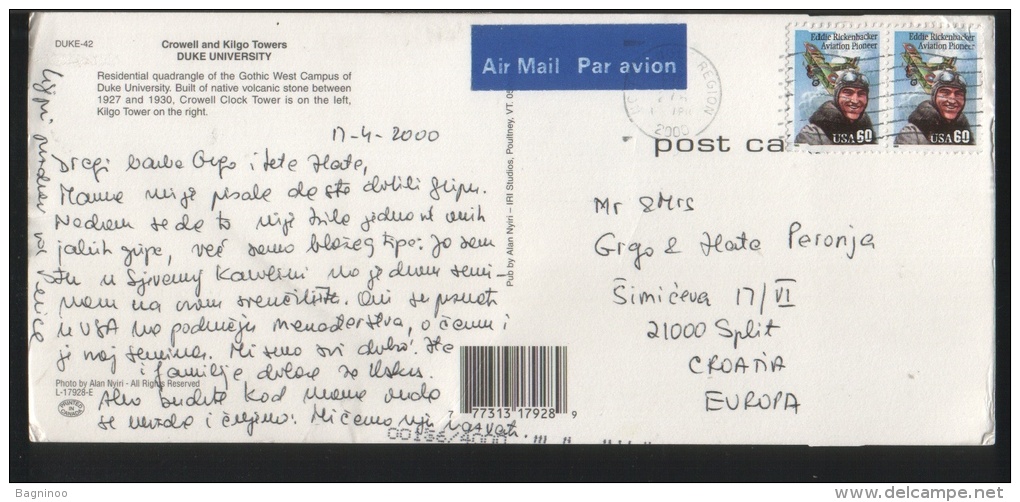 DUKE-42
Crowell and Kilgo Towers
DUKE UNIVERSITY
Residential quadrangle of the Gothic West Campus of
Duke University. Built of native volcanic stone between
1927 and 1930, Crowell Clock Tower is on the left,
Kilgo Tower on the right.
17-4-2000
Dragi barba Grgo i teta Zlate,
Mama mi je pisala da ste dobili gripu.
Nadam se da to nije bila jedna od onih
jakih gripa, već samo blažeg tipa. Ja sam
tu u Sjevernoj Karolini na jednom semi-
naru na ovom sveučilištu. Oni su poznati
u USA na području managerstva, o čemu i
je moj seminar. Mi smo svi dobro.
i familija dolaze za Uskrs.
Ako budete kod mame onda
se možda i čujemo. Mi ćemo nju nazvati.
Photo by Alan Nyiri - All Rights Reserved
L-17928-E
PRINTED IN CANADA
Pub by Alan Nyiri – IRI Studios, Poultney, VT. 05
7 77313 17928 9
Air Mail Par avion
REGION
2000
post ca
Eddie Rickenbacker
Aviation Pioneer
USA 60
Eddie Rickenbacker
Aviation Pioneer
USA 60
Mr & Mrs
Grgo & Zlate Peronja
Šimićeva 17/VI
21000 Split
CROATIA
EUROPA
Bagninoo
www.delcampe.net